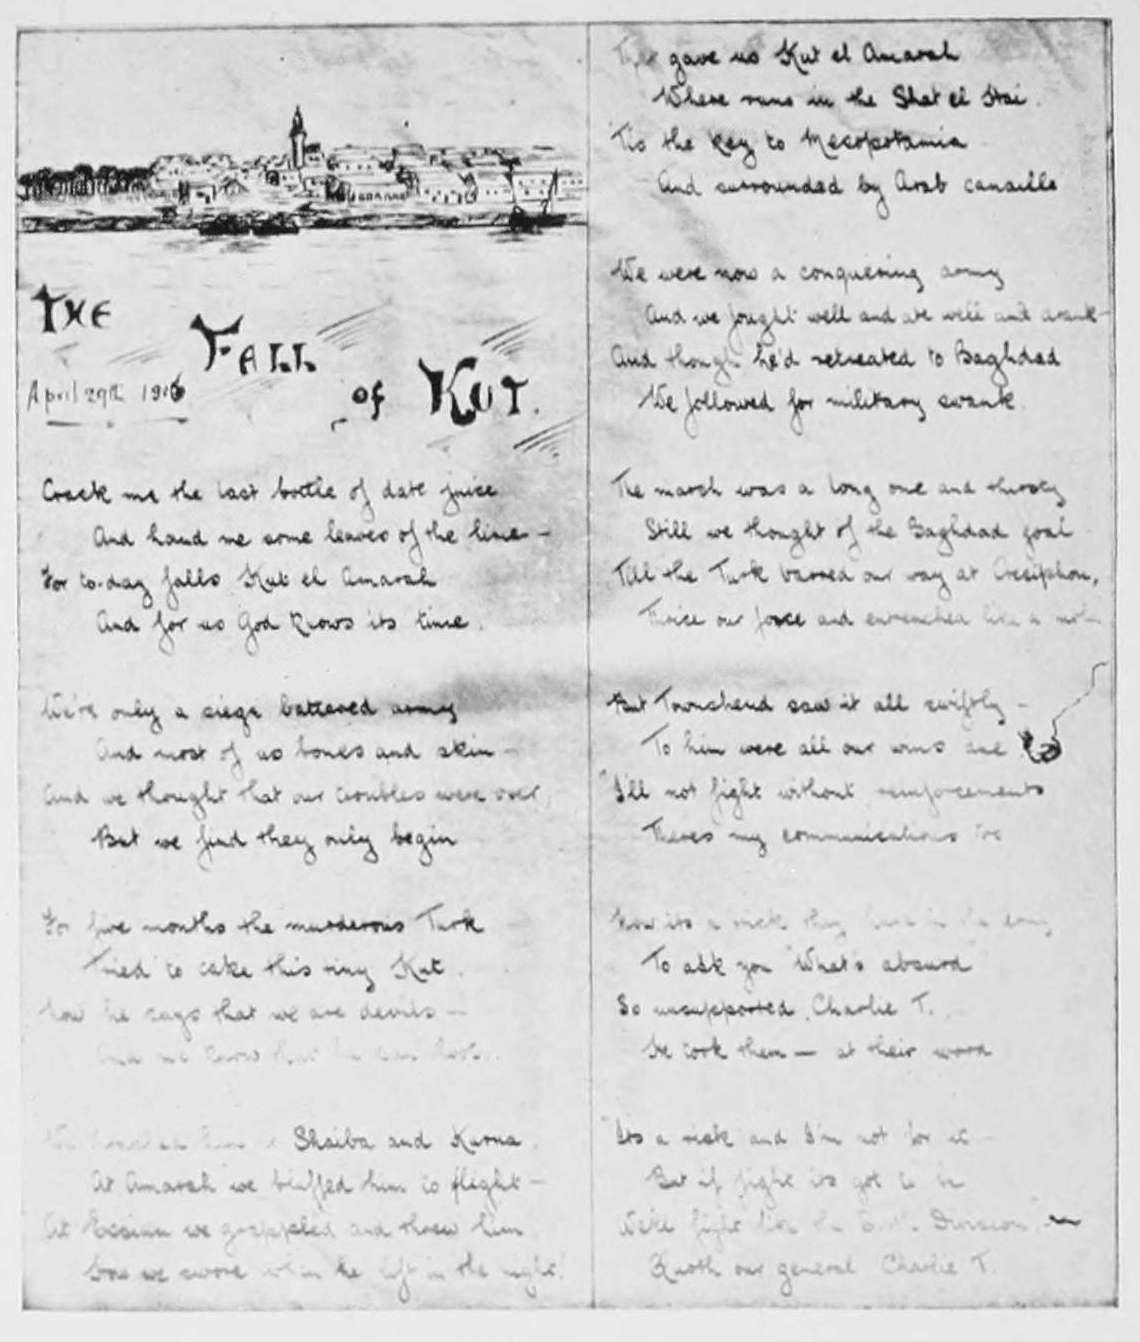 THE
FALL
of KUT.
April 29th 1916
Crack me the last bottle of date juice
And hand me some leaves of the lime —
For to-day falls Kut el Amarah
And for us God knows its time.
We're only a siege battered army
And most of us bones and skin —
And we thought that our troubles were over,
But we find they only begin
For five months the murderous Turk
Tried to take this tiny Kut.
Now he says that we are devils —
And we know that he
him at Shaiba and Kurna.
At Amarah we bluffed him to flight —
At Essinn we grappled and threw him
we swore when he left in the night!
gave us Kut el Amarah
Where runs in the Shat el Hai.
'Tis the key to Mesopotamia
And surrounded by Arab canaille
We were now a conquering army
And we fought well and ate well and drank
And though he'd retreated to Baghdad
We followed for military swank.
The march was a long one and thirsty
Still we thought of the Baghdad goal
Till the Turk barred our way at Ctesiphon,
Thrice our force and entrenched like a mole
But Townshend saw it all swiftly —
To him were all our wins due
"I'll not fight without reinforcements
Theres my communications too
Now its a risk they
To ask you "What's absurd"
So unsupported, Charlie T.
He took them — at their word
"Its a risk and I'm not for it —
But if fight its got to be
We'll fight like the Division" —
Quoth our general Charlie T.